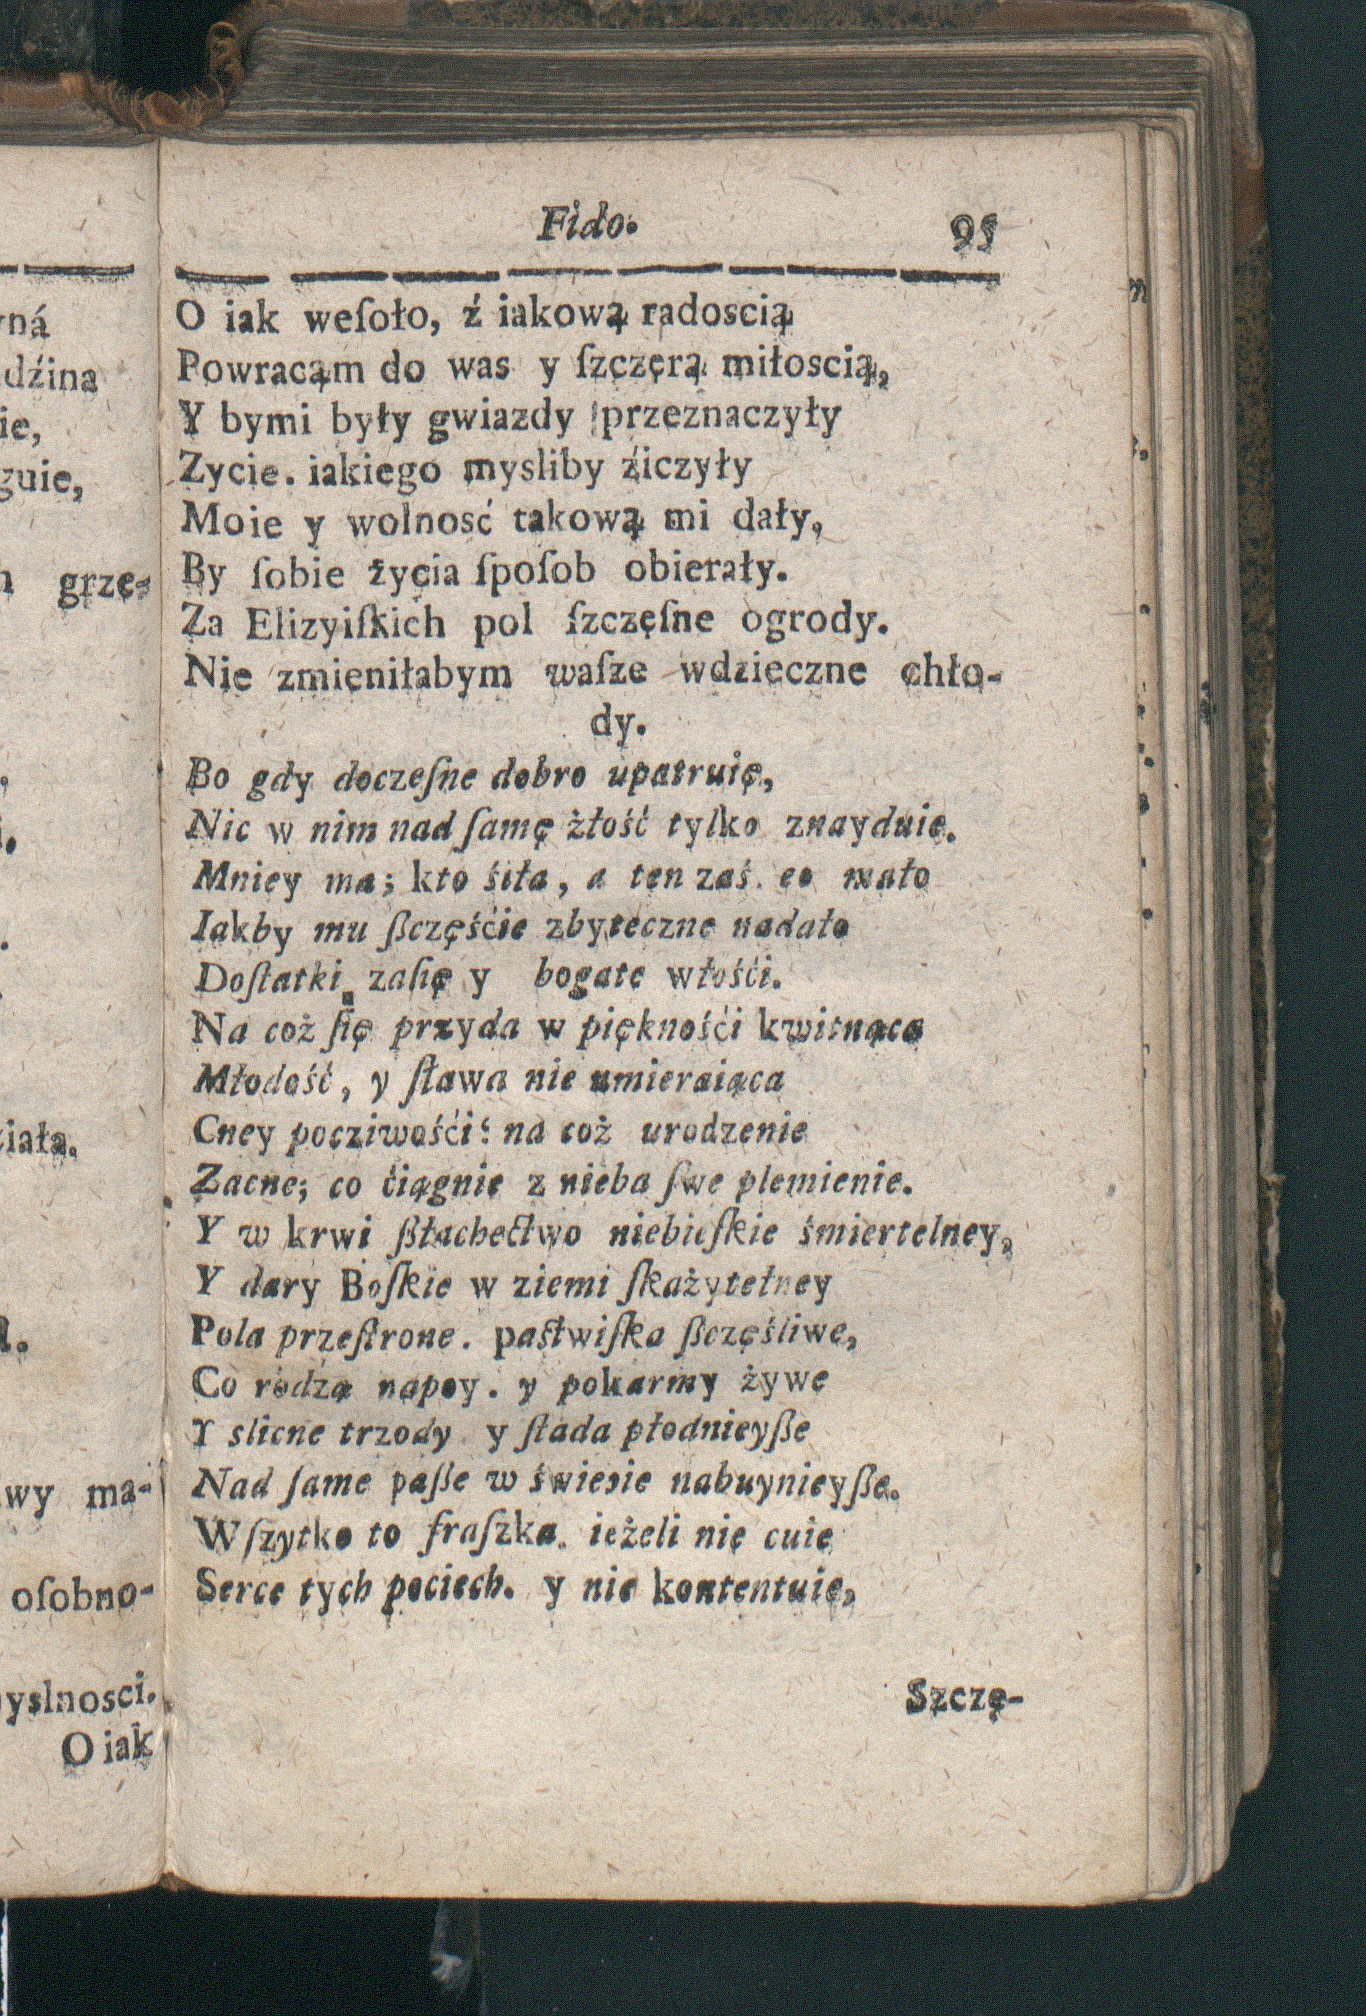 yná
dźina
ie,
guie,
grze-
ciała.
wy ma-
oſobno-
yslnosci.
O iak
Fido. 95
O iak weſoło, ź iakową radoscią
Powracam do was y ſzczęrą miłoscią,
Y bymi były gwiazdy przeznaczyły
Zycie. iakiego mysliby źiczyły
Moie y wolność takową mi dały,
By ſobie życia ſpoſob obierały.
Za Elizyiſkich pol ſzczęſne ogrody.
Nie zmieniłabym waſze wdzięczne chło-
dy.
Bo gdy doczeſne dobro upatruię,
Nic w nim nad ſamę żłość tylko znayduie.
Mniey ma; kto śiła, a ten zaś. co mało
Iakby mu ßczęśćie zbyteczne nadało
Doſtatki zaſię y bogate włośći.
Na coż ſię przyda w pięknośći kwitnąca
Młodość, y ſława nie umieraiąca
Cney pocziwośći: na coż urodzenie
Zacne; co ćiągnie z nieba ſwe plemienie.
Y w krwi ßłachectwo niebieſkie śmiertelney,
Y dary Boſkie w ziemi ſkażytełney
Pola przeſtrone. paſtwiſka ßczęśliwe,
Co rodzą napoy. y pokarmy żywe
Y slicne trzody y ſtada płodnieyße
Nad ſame paße w świecie nabuynieyße.
Wſzytko to fraſzka. ieżeli nię cuie
Serce tych pociech. y nie kontentuie,
Szczę-